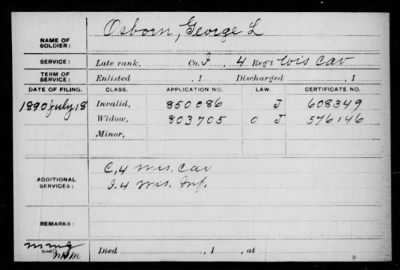 NAME OF SOLDIER: Osborn, George L
SERVICE: Late rank, Co. F, 4 Reg't Wis Cav
TERM OF SERVICE: Enlisted , 1 Discharged , 1
DATE OF FILING. CLASS. APPLICATION NO. LAW. CERTIFICATE NO.
1890 July 18 Invalid, 850086 J 608349
Widow, 803705 O J 576146
Minor,
ADDITIONAL SERVICES: C, 4 Wis. Cav
I. 4 Wis. Inf.
REMARKS:
Died , 1 , at